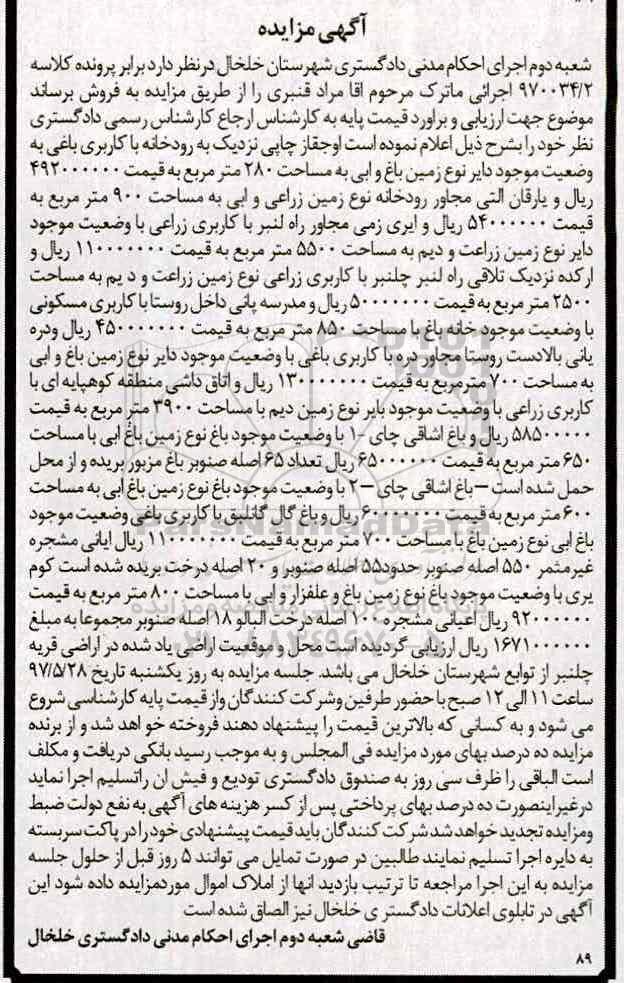 آگهی مزایده
شعبه دوم اجرای احکام مدنی دادگستری شهرستان خلخال در نظر دارد برابر پرونده کلاسه
۹۷۰۰۳۴/۲ اجرائی ماترک مرحوم اقا مراد قنبری را از طریق مزایده به فروش برساند
موضوع جهت ارزیابی و براورد قیمت پایه به کارشناس ارجاع کارشناس رسمی دادگستری
نظر خود را بشرح ذیل اعلام نموده است اوجقاز چاپی نزدیک به رودخانه با کاربری باغی به
وضعیت موجود دایر نوع زمین باغ و ابی به مساحت ۲۸۰ متر مربع به قیمت ۴۹۲۰۰۰۰۰۰
ریال و یارقان التی مجاور رودخانه نوع زمین زراعی و ابی به مساحت ۹۰۰ متر مربع به
قیمت ۵۴۰۰۰۰۰۰ ریال و ایری زمی مجاور راه لنبر با کاربری زراعی با وضعیت موجود
دایر نوع زمین زراعت و دیم به مساحت ۵۵۰۰ متر مربع به قیمت ۱۱۰۰۰۰۰۰۰ ریال و
ارکده نزدیک تلاقی راه لنبر چلنبر با کاربری زراعی نوع زمین زراعت و د یم به مساحت
۲۵۰۰ متر مربع به قیمت ۵۰۰۰۰۰۰۰ ریال و مدرسه پانی داخل روستا با کاربری مسکونی
با وضعیت موجود خانه باغ با مساحت ۸۵۰ متر مربع به قیمت ۴۵۰۰۰۰۰۰۰ ریال ودره
یانی بالادست روستا مجاور دره با کاربری باغی با وضعیت موجود دایر نوع زمین باغ و ابی
به مساحت ۷۰۰ مترمربع به قیمت ۱۳۰۰۰۰۰۰۰ ریال و اتاق داشی منطقه کوهپایه ای با
کاربری زراعی با وضعیت موجود بایر نوع زمین دیم با مساحت ۳۹۰۰ متر مربع به قیمت
۵۸۵۰۰۰۰۰ ریال و باغ اشاقی چای -۱ با وضعیت موجود باغ نوع زمین باغ ابی با مساحت
۶۵۰ متر مربع به قیمت ۶۵۰۰۰۰۰۰ ریال تعداد ۶۵ اصله صنوبر باغ مزبور بریده و از محل
حمل شده است –باغ اشاقی چای –۲ با وضعیت موجود باغ نوع زمین باغ ابی به مساحت
۶۰۰ متر مربع به قیمت ۶۰۰۰۰۰۰۰ ریال و باغ گال گانلیق با کاربری باغی وضعیت موجود
باغ ابی نوع زمین باغ با مساحت ۷۰۰ متر مربع به قیمت ۱۱۰۰۰۰۰۰۰ ریال ایانی مشجره
غیرمثمر ۵۵۰ اصله صنوبر حدود۵۵ اصله صنوبر و ۲۰ اصله درخت بریده شده است کوم
یری با وضعیت موجود باغ نوع زمین باغ و علفزار و ابی با مساحت ۸۰۰ متر مربع به قیمت
۹۲۰۰۰۰۰۰ ریال اعیانی مشجره ۱۰۰ اصله درخت البالو ۱۸ اصله صنوبر مجموعا به مبلغ
۱۶۷۱۰۰۰۰۰۰ ریال ارزیابی گردیده است محل و موقعیت اراضی یاد شده در اراضی قریه
چلنبر از توابع شهرستان خلخال می باشد. جلسه مزایده به روز یکشنبه تاریخ ۹۷/۵/۲۸
ساعت ۱۱ الی ۱۲ صبح با حضور طرفین وشرکت کنندگان واز قیمت پایه کارشناسی شروع
می شود و به کسانی که بالاترین قیمت را پیشنهاد دهند فروخته خو اهد شد و از برنده
مزایده ده درصد بهای مورد مزایده فی المجلس و به موجب رسید بانکی دریافت و مکلف
است الباقی را ظرف سی روز به صندوق دادگستری تودیع و فیش ان راتسلیم اجرا نماید
درغیراینصورت ده درصد بهای پرداختی پس از کسر هزینه های آگهی به نفع دولت ضبط
ومزایده تجدید خواهد شد شرکت کنندگان باید قیمت پیشنهادی خود را در پاکت سربسته
به دایره اجرا تسلیم نمایند طالبین در صورت تمایل می توانند ۵ روز قبل از حلول جلسه
مزایده به این اجرا مراجعه تا ترتیب بازدید انها از املاک اموال موردمزایده داده شود این
آگهی در تابلوی اعلانات دادگستر ی خلخال نیز الصاق شده است
قاضی شعبه دوم اجرای احکام مدنی دادگستری خلخال
۸۹
ParsNamadData